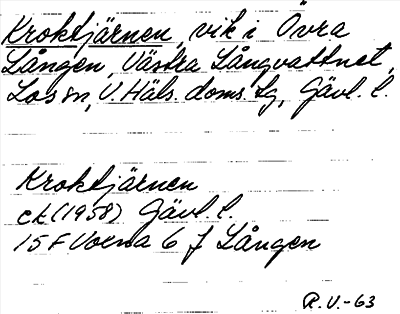 Kroktjärnen, vik i Övra
Lången, Västra Långvattnet,
Los sn, V. Häls. doms. lg, Gävl. l.
Kroktjärnen
ek (1958) Gävl. l.
15 F Voxna 6 f Lången
R.V.-63